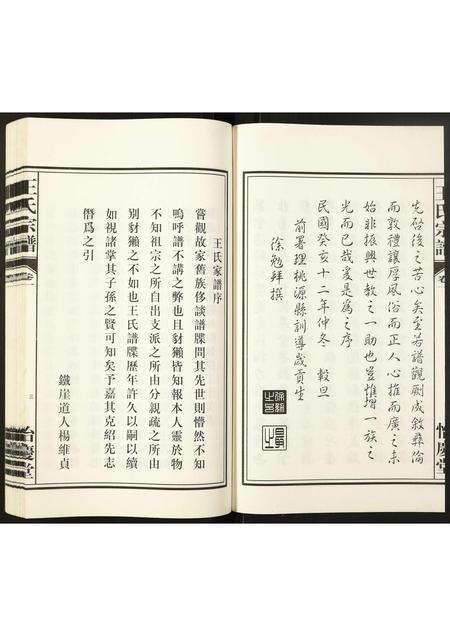 王氏宗譜
卷
怡慶堂
先啓後之苦心矣至若譜觀厥成敘彝倫
而敦禮讓厚風俗而正人心推而廣之未
始非振興世教之一助也豈惟增一族之
光而已哉爰是為之序
民國癸亥十二年仲冬 穀旦
前署理桃源縣訓導歲貢生
徐勉拜撰
王氏家譜序
嘗觀故家舊族侈談譜牒問其先世則懵然不知
嗚呼譜不講之弊也且豺獺皆知報本人靈於物
不知祖宗之所自出支派之所由分親疏之所由
別豺獺之不如也王氏譜牒歷年許久以嗣以續
如視諸掌其子孫之賢可知矣予嘉其克紹先志
僭爲之引
鐵崖道人楊維貞
王氏宗譜
卷
三
怡慶堂